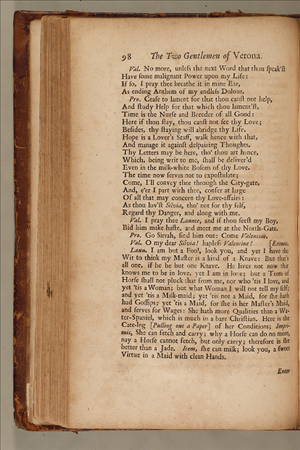 98 The Two Gentlemen of Verona.
Val. No more, unless the next Word that thou speak'st
Have some malignant Power upon my Life:
If so, I pray thee breathe it in mine Ear,
As ending Anthem of my endless Dolour.
Pro. Cease to lament for that thou canst not help,
And study Help for that which thou lament'st.
Time is the Nurse and Breeder of all Good:
Here if thou stay, thou canst not see thy Love;
Besides, thy staying will abridge thy Life.
Hope is a Lover's Staff, walk hence with that,
And manage it against despairing Thoughts.
Thy Letters may be here, tho' thou art hence,
Which, being writ to me, shall be deliver'd
Even in the milk-white Bosom of thy Love.
The time now serves not to expostulate;
Come, I'll convey thee through the City-gate,
And, e'er I part with thee, confer at large
Of all that may concern thy Love-affairs:
As thou lov'st Silvia, tho' not for thy self,
Regard thy Danger, and along with me.
Val. I pray thee Launce, and if thou seest my Boy,
Bid him make haste, and meet me at the North-Gate.
Pro. Go Sirrah, find him out: Come Valentine.
Val. O my dear Silvia! hapless Valentine! [Exeunt.
Laun. I am but a Fool, look you, and yet I have the
Wit to think my Master is a kind of a Knave: But that's
all one, if he be but one Knave. He lives not now that
knows me to be in love, yet I am in love; but a Team of
Horse shall not pluck that from me, nor who 'tis I love, and
yet 'tis a Woman; but what Woman I will not tell my self;
and yet 'tis a Milk-maid; yet 'tis not a Maid, for she hath
had Gossips; yet 'tis a Maid, for she is her Master's Maid,
and serves for Wages: She hath more Qualities than a Wa-
ter-Spaniel, which is much in a bare Christian. Here is the
Cate-log [Pulling out a Paper] of her Conditions; Impri-
mis, She can fetch and carry; why a Horse can do no more;
nay a Horse cannot fetch, but only carry; therefore is she
better than a Jade. Item, she can milk; look you, a sweet
Virtue in a Maid with clean Hands.
Enter